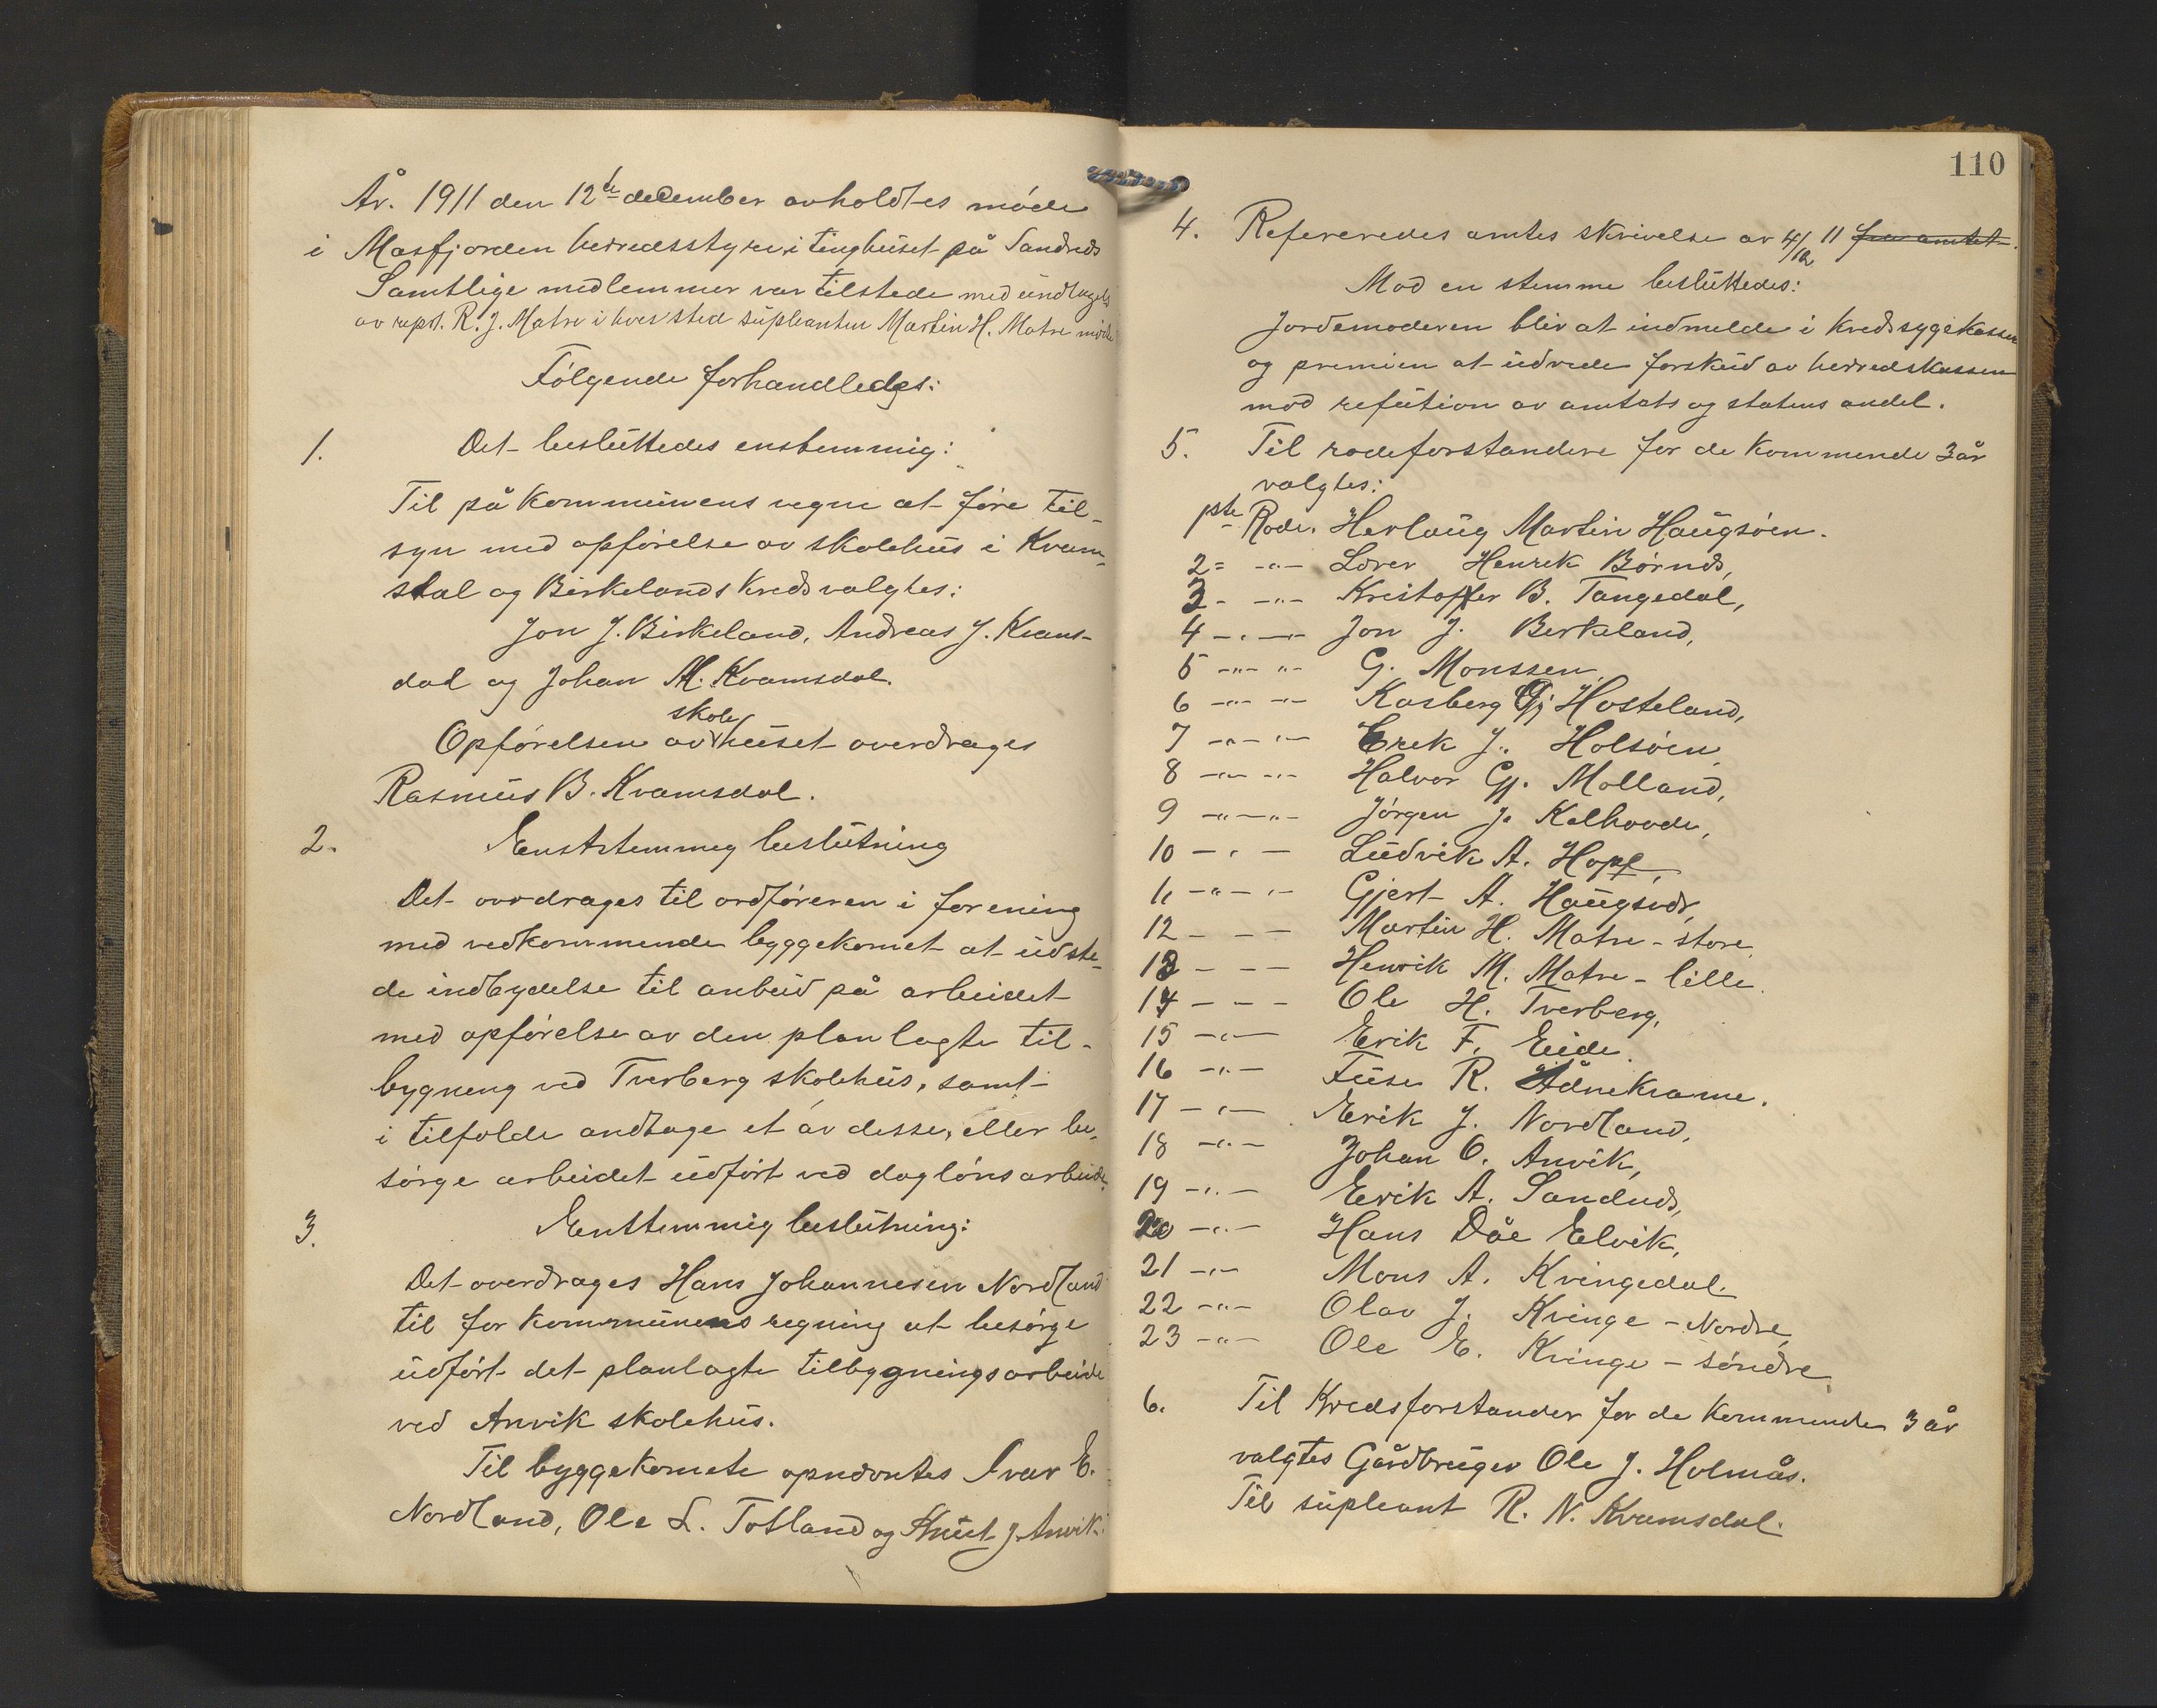 År. 1911 den 12te december avholdtes møde
i Masfjorden herredsstyre i tinghuset på Sandnes
Samtlige medlemmer var tilstede med undtagels
av repr. R. J. Matre i hvis sted supleanten Martin H. Matre møde
Følgende forhandledes:
1. Det besluttedes enstemmig:
Til på kommunens vegne at føre til-
syn med opførelse av skolehus i Kvam-
sdal og Birkelands kreds valgtes:
Jon J. Birkeland, Andreas J. Kvams-
dal og Johan M. Kvamsdal.
Opførelsen av skolehuset overdrages
Rasmus B. Kvamsdal.
2. Enststemmeg beslutning
Det overdrages til ordføreren i forening
med vedkommende byggekomet at udste-
de indbydelse til anbud på arbeidet
med opførelse av den planlagte til-
bygneng ved Tverberg skolehus, samt
i tilfælde andtage et av desse, eller be-
sørge arbeidet udført ved daglønsarbeide.
3. Enstemmig beslutning:
Det overdrages Hans Johannesen Nordland
til for kommunens regning at besørge
udført det planlagte tilbygningsarbeide
ved Anvik skolehus.
Til byggekomete opnevntes Ivar E.
Nordland, Ole L. Totland og Knut J. Anvik.
110
4. Refereredes amtes skrivelse av 4/12 11 fra amtet.
Mod en stemme besluttedes:
Jordemoderen blir at indmelde i kredssygekassen
og premien at udrede forskud av herredskassen
mod refution av amtets og statens andel.
5. Til rodeforstandere for de kommende 3 år
valgtes:
1ste Rode. Herlaug Martin Haugsøen.
2 = -"- Lærer Henrik Børnds,
3 - -"- Kristoffer B. Tangedal,
4 -"- Jon J. Berkeland,
5 -"- "- G. Monssen,
6 -"- "- Kasberg Gj Hosteland,
7 -"- "- Erek J. Holsøen,
8 -"- "- Halvor Gj. Molland,
9 -"- "- Jørgen J. Kalhovde,
10 -"- Ludvik A. Hope,
11 -"- "- Gjert A. Haugsvær,
12 - - - Martin H. Matre - store
13 - - - Henrik M. Matre - lille.
14 - - - Ole H. Tverberg,
15 -"- Erik F. Eide.
16 -"- Fuse R. Ådnekvame.
17 -"- Erik J. Nordland,
18 -"- Johan O. Anvik,
19 -"- Erik A. Sandnes,
20 -"- Hans Dåe Elvik,
21 -"- Mons A. Kvingedal.
22 -"- Olav J. Kvinge - Nordre,
23 -"- Ole E. Kvinge - søndre.
6. Til Kredsforstander for de kommende 3 år
valgtes Gårdbruger Ole J. Holmås.
Til supleant R. N. Kvamsdal.